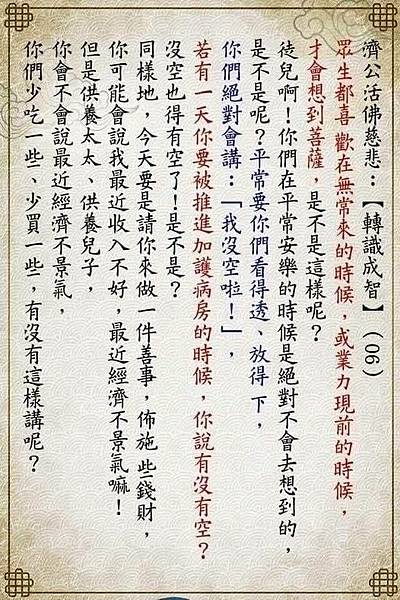 濟公活佛慈悲：【轉識成智】（06）
眾生都喜歡在無常來的時候，或業力現前的時候，
才會想到菩薩，是不是這樣呢？
徒兒啊！你們在平常安樂的時候是絕對不會去想到的，
是不是呢？平常要你們看得透、放得下，
你們絕對會講：「我沒空啦！」，
若有一天你要被推進加護病房的時候，你說有沒有空？
沒空也得有空了！是不是？
同樣地，今天要是請你來做一件善事，佈施些錢財，
你可能會說我最近收入不好，最近經濟不景氣嘛！
但是供養太太、供養兒子，
你會不會說最近經濟不景氣，
你們少吃一些、少買一些，有沒有這樣講呢？